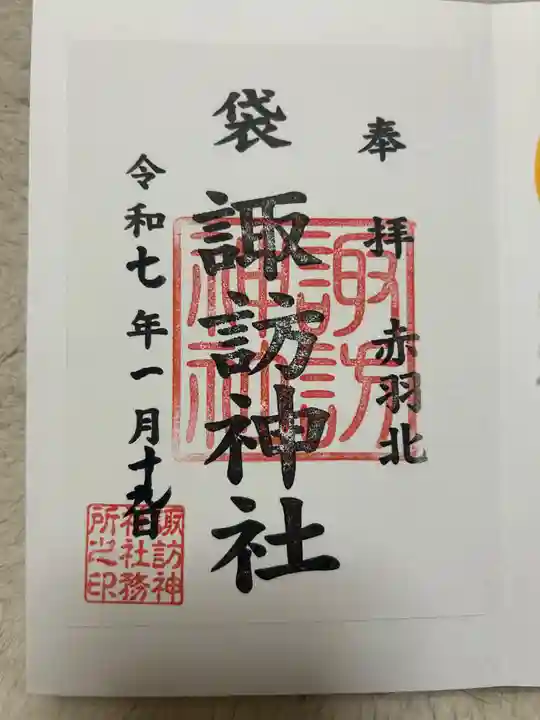 奉拝 赤羽北
袋 諏訪神社
諏訪
神社
令和七年一月十九日
諏訪神
社社務
所之印